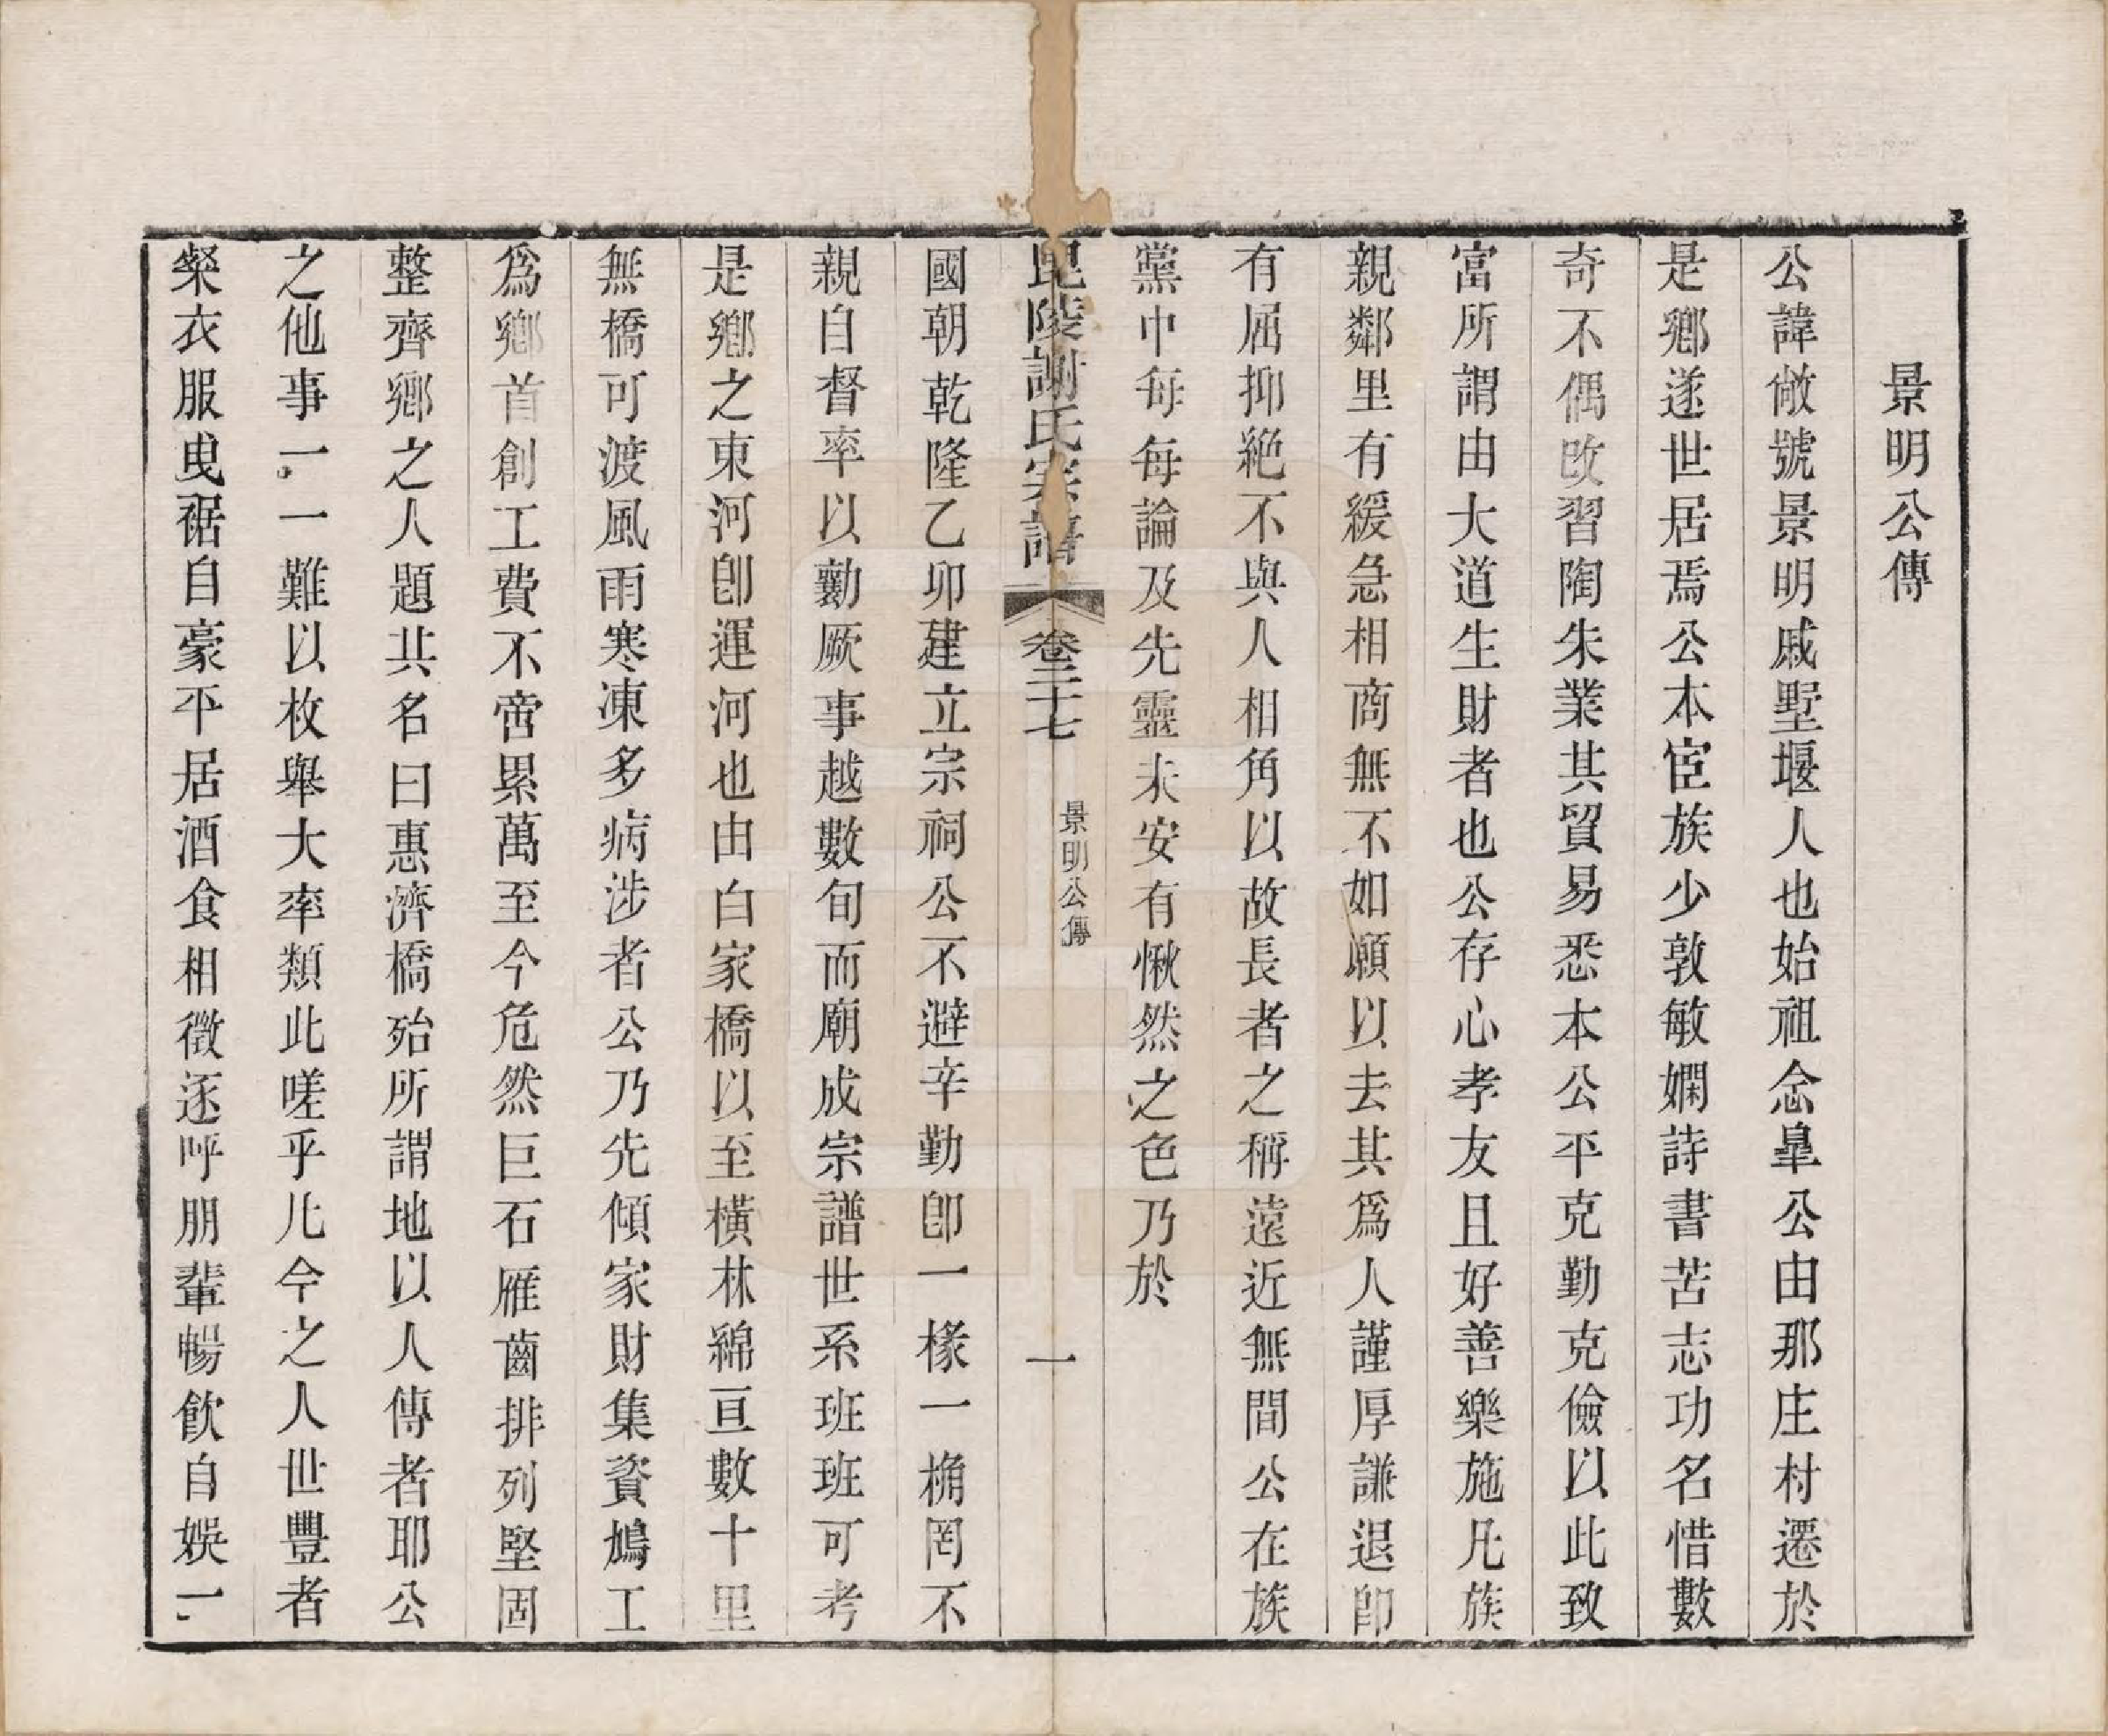 景明公傳
公諱敞號景明戚墅堰人也始祖念臯公由那庄村遷於
是鄉遂世居焉公本宦族少敦敏嫻詩書苦志功名惜數
奇不偶改習陶朱業其貿易悉本公平克勤克儉以此致
富所謂由大道生財者也公存心孝友且好善樂施凡族
親鄰里有緩急相商無不如願以去其爲人謹厚謙退卽
有屈抑絶不與人相角以故長者之稱遠近無間公在族
黨中每每論及先靈未安有愀然之色乃於
毘陵謝氏宗譜 卷三十七 景明公傳 一
國朝乾隆乙卯建立宗祠公不避辛勤卽一椽一桷罔不
親自督率以勷厥事越數旬而廟成宗譜世系班班可考
是鄉之東河卽運河也由白家橋以至橫林綿亘數十里
無橋可渡風雨寒凍多病涉者公乃先傾家財集資鳩工
爲鄉首創工費不啻累萬至今危然巨石雁齒排列堅固
整齊鄉之人題其名曰惠濟橋殆所謂地以人傳者耶公
之他事一一難以枚舉大率類此嗟乎凡今之人世豐者
粲衣服曳裾自豪平居酒食相徵逐呼朋輩暢飲自娛一